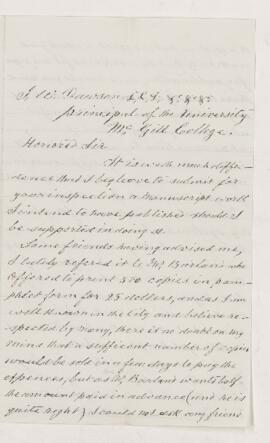 J. W. Dawson L.L.D. &c &c &c
Principal of the University
Mc Gill College.
Honored Sir
It is with much diffe-
rence that I beg leave to submit for
your inspection a manuscript work
I intend to have published should I
be supported in doing it.
Some friends having advised me,
I lately refered it to Mr. who
offered to print 500 copies in pam-
phlet form for 25 dollars, and as I am
well known in the city and believe re-
spected by many, there is no doubt on my
mind that a sufficent number of copies
would be sold in a few days to pay the
expences, but as Mr. wants half
the amount paid in advance (and he is
quite right) I could not ask any friend